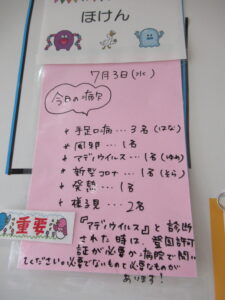 ほけん
7月3日(水)
今日の病欠
* 手足口病…3名(はな)
* 胃腸…1名
* アデノウイルス…1名(ゆめ)
* 新型コロナ…1名(そら)
* 発熱…1名
* 様子見…2名
重要
『アデノウイルス』と診断
された時は、登園許可
証が必要か病院で聞い
てください☆必要でないものと必要なものが
あります!